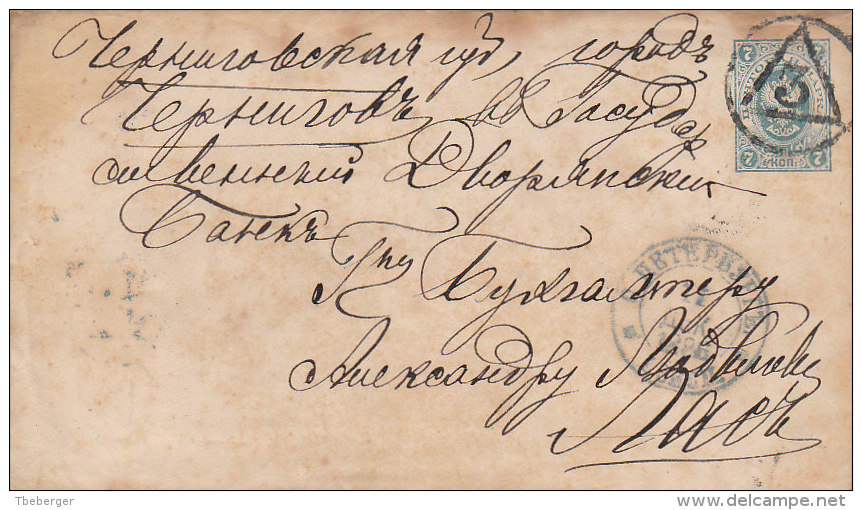 Черниговская губ, городъ
Черниговъ въ Государ
ственный Дворянскій
Банкъ
Гну Бухгалтеру
Александру
Лясъ
7
7
7 КОП. 7
3
С.ПЕТЕРБУРГЪ
1
ДЕК
Tbeberger
delcampe.net